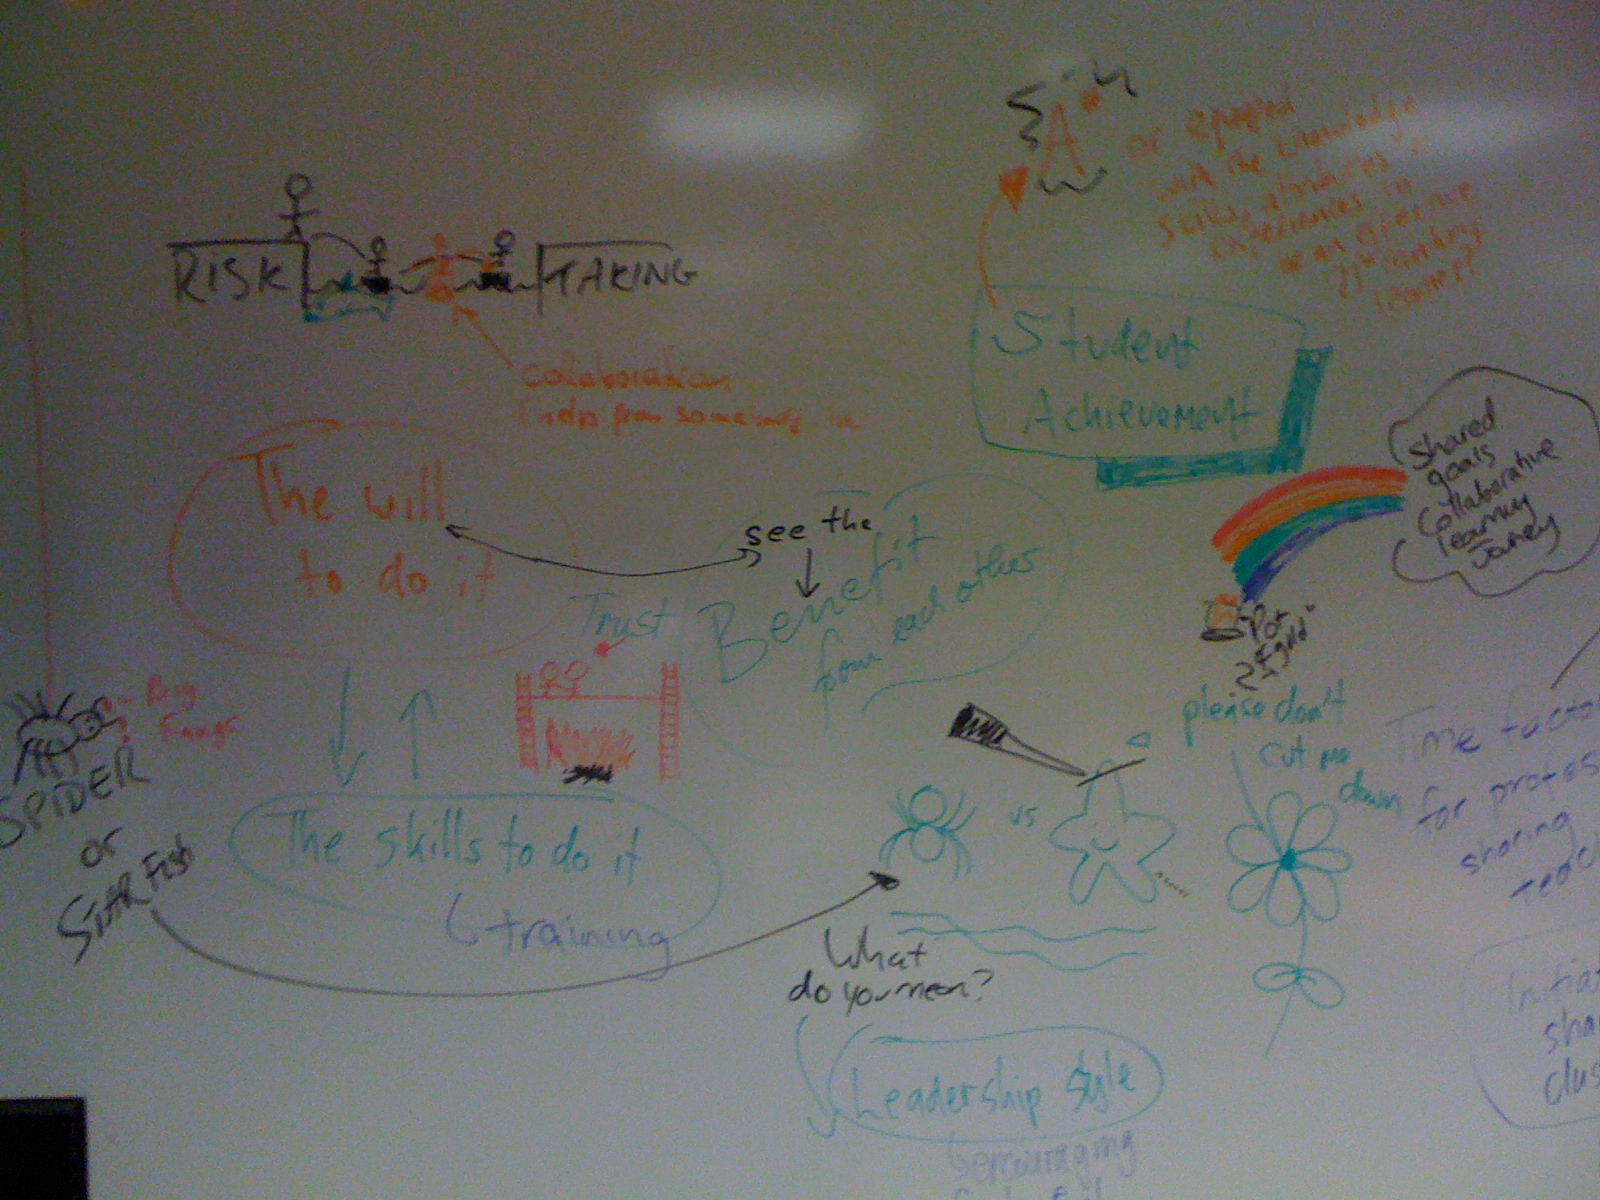 RISK TAKING
Collaboration
help from
The will
to do it
see the
Benefit
from each other
Trust
Big
Fangs
SPIDER
or
STARFISH
The skills to do it
training
A*
or equipped
with the knowledge
skills, attributes
experiences to
be an
21st Century
learner?
Student
Achievement
Shared
goals
Collaborative
learning
Jorney
"Pot
gold"
please don't
cut me
down
vs
What
do you mean?
Leadership style
encouraging
Time factor
for profes
sharing
teac
Initia
sha
clus